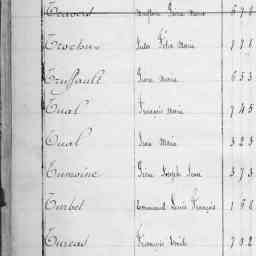 Travers Pierre Marie 678
Trochu Jules Félix Marie 778
Truffault Pierre Marie 653
Tual François Marie 745
Tual Jean Marie 323
Tumoine Pierre Joseph Jean 373
Turbet Emmanuel Louis François 1
Tureau François 702